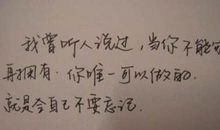 我曾听人说过，当你不能够
再拥有，你唯一可以做的，
就是令自己不要忘记．